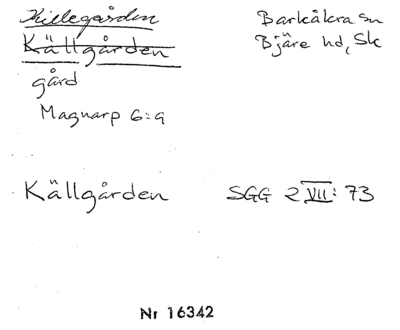 Killegården
Källgården
gård
Magnarp 6:9
Barkåkra sn
Bjäre hd, Sk
Källgården
SGG 2 VII: 73
Nr 16342